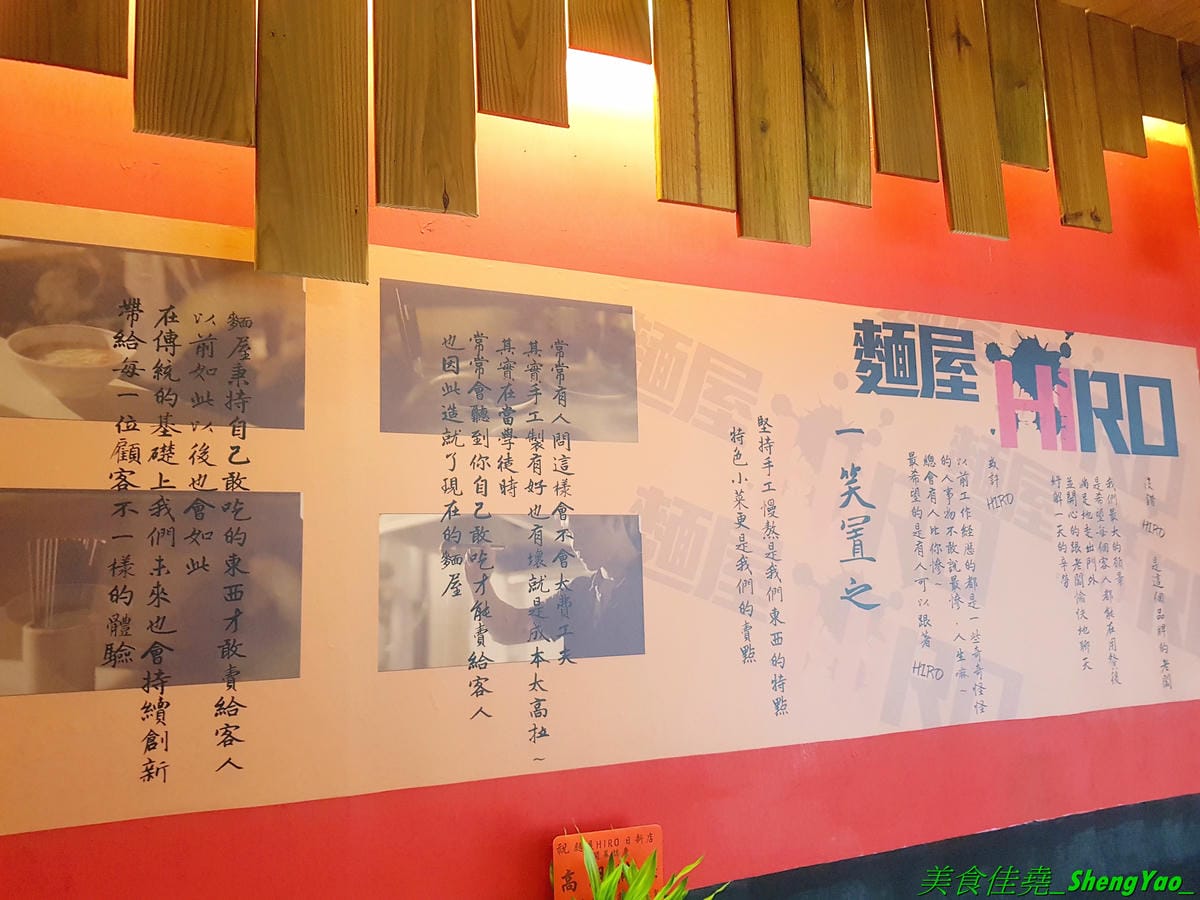 麵屋HiRO
沒錯 HIRO 是這個品牌的老闆
我們最大的願景
是希望每個客人都能在用餐後
滿足地走出門外
並開心的跟老闆愉快地聊天
紓解一天的辛勞
或許 HIRO
以前工作經歷的都是一些奇奇怪怪
的人事物不敢說最慘，人生嘛～
總會有人比你慘～
最希望的是有人可以跟著 HIRO
一笑置之
堅持手工慢熬是我們東西的特點
特色小菜更是我們的賣點
常常有人問這樣會不會太費工夫
其實手工製有好也有壞就是成本太高拉～
其實在當學徒時
常常會聽到你自己敢吃才能賣給客人
也因此造就了現在的麵屋
麵屋秉持自己敢吃的東西才敢賣給客人
以前如此以後也會如此
在傳統的基礎上我們未來也會持續創新
帶給每一位顧客不一樣的體驗
祝 麵屋HIRO 日新店
高
美食佳堯_ShengYao_